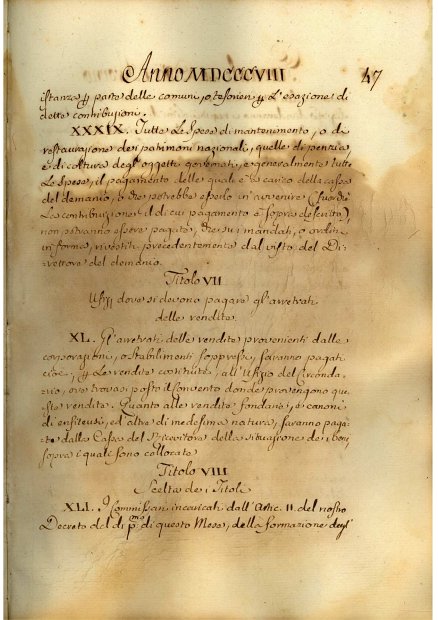 ANNO MDCCCVIII 47
istanza p parte delle comuni, o tesorieri p l'esazione di
dette contribuzioni.
XXXIX. Tutte le spese di mantenimento, o di
restaurazione dei patrimoni nazionali, quelle di
e di coltura degl'oggetti, e generalmente tutte
le spese, il pagamento delle quali è a carico della cassa
del demanio, o che potrebbe esserlo in avvenire (fuorchè
le contribuzioni il di cui pagamento è sopra descritto)
non potranno essere pagate, che su i mandati, o ordini
in forma, rivestiti precedentemente dal visto del Di-
rettore del demanio.
Titolo VII
Ufizj dove si devono pagare gl'arretrati
delle rendite.
XL. Gl'arretrati delle rendite provenienti dalle
corporazioni, o stabilimenti soppressi, saranno pagati
cioè; p le rendite costituite, all'Ufizio del Circonda-
rio, ove trovasi posto il convento donde provengono que-
ste rendite. Quanto alle rendite fondarie, e canoni
di enfiteusi, ed altre di medesima natura, saranno paga-
te dalla Cassa del Ricevitore della situazione dei beni,
sopra i quali sono collocate.
Titolo VIII
Scelta dei Titoli
XLI. I Commissari incaricati dall'Artic. 11. del nostro
Decreto del dì pmo di questo Mese, della formazione degl'